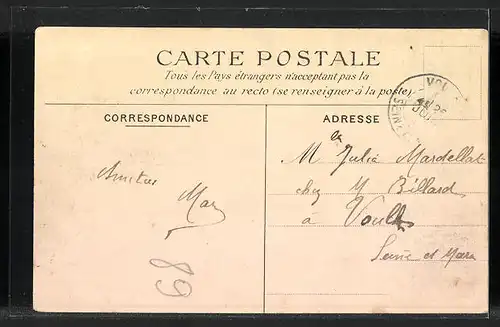 CARTE POSTALE
Tous les Pays étrangers n'acceptant pas la
correspondance au recto (se renseigner à la poste)
VOU
CORRESPONDANCE
ADRESSE
Mlle Julia Mardellat
chez M Billard
à Voulx
Seine et Marne
Amitiés
May
89